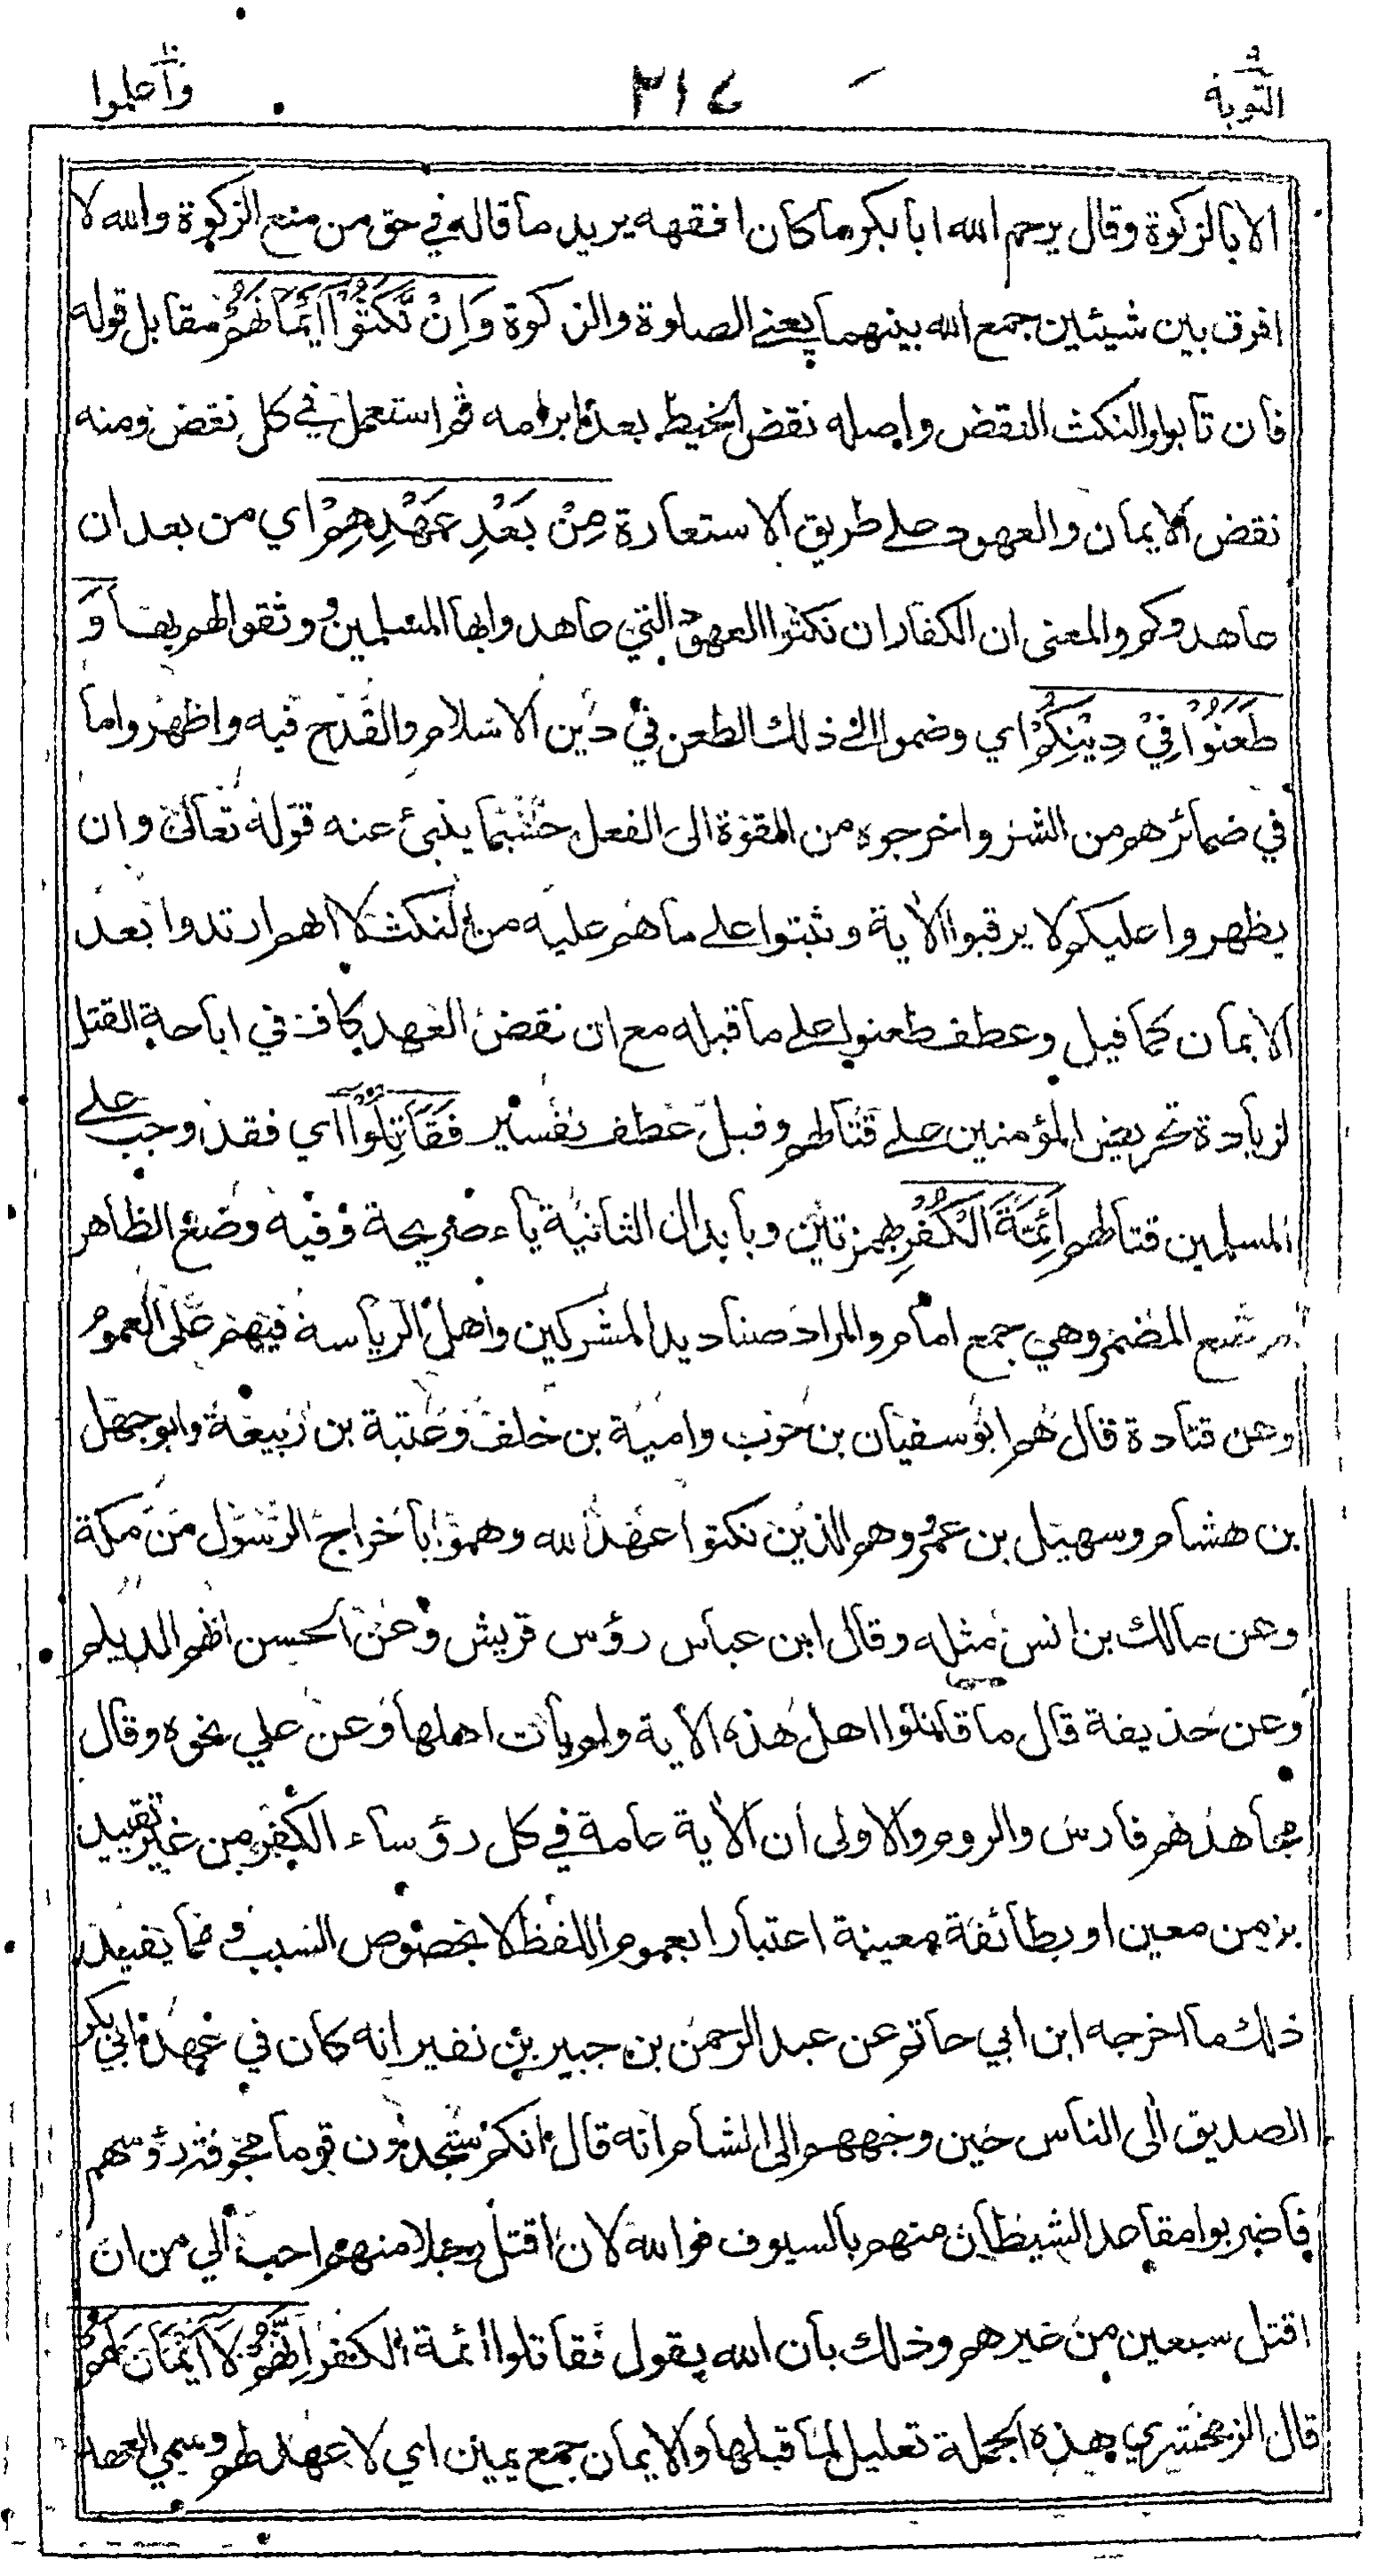 التوبة ٣١٤ واعلموا
الا بالزكوة وقال يرحم الله ابا بكر ما كان افقهه يريد ما قاله في حق من منع الزكوة والله لا
افرق بين شيئين جمع الله بينهما يعني الصلوة والزكوة وَاِنْ نَّكَثُوْا اَيْمَانَهُمْ مقابل قوله
فان تابوا والنكث النقض واصله نقض الخيط بعد ابرامه ثم استعمل في كل نقض ومنه
نقض الايمان والعهود على طريق الاستعارة مِنْ بَعْدِ عَهْدِهِمْ اي من بعد ان
عاهدوكم والمعنى ان الكفار ان نكثوا العهود التي عاهدوا بها المسلمين ووثقوا لهم بها وَ
طَعَنُوْا فِيْ دِيْنِكُمْ اي وضموا الى ذلك الطعن في دين الاسلام والقدح فيه واظهروا ما
في ضمائرهم من الشر واخرجوه من القوة الى الفعل حسبما ينبئ عنه قوله تعالى وان
يظهروا عليكم لا يرقبوا الاية وثبتوا على ما هم عليه من النكث لا انهم ارتدوا بعد
الايمان كما قيل وعطف طعنوا على ما قبله مع ان نقض العهد كاف في اباحة القتل
لزيادة تحريض المؤمنين على قتالهم وقيل عطف تفسير فَقَاتِلُوْا اي فقد وجب على
المسلمين قتالهم اَئِمَّةَ الْكُفْرِ بهمزتين وبابدال الثانية ياء صريحة وفيه وضع الظاهر
موضع المضمر وهي جمع امام والمراد صناديد المشركين واهل الرياسة فيهم على العموم
وعن قتادة قال هم ابو سفيان بن حرب وامية بن خلف وعتبة بن ربيعة وابو جهل
بن هشام وسهيل بن عمرو وهم الذين نكثوا عهد الله وهموا باخراج الرسول من مكة
وعن مالك بن انس مثله وقال ابن عباس رؤس قريش وعن الحسن انهم الديلم
وعن حذيفة قال ما قاتلوا اهل هذه الاية ولم يأت اهلها وعن علي نحوه وقال
مجاهد هم فارس والروم والاولى ان الاية عامة في كل رؤساء الكفر من غير تقييد
بزمن معين او بطائفة معينة اعتبارا بعموم اللفظ لا بخصوص السبب ومما يفيد
ذلك ما اخرجه ابن ابي حاتم عن عبد الرحمن بن جبير بن نفير انه كان في عهد ابي بكر
الصديق الى الناس حين وجههم الى الشام انه قال انكم ستجدون قوما محوقة رؤسهم
فاضربوا مقاعد الشيطان منهم بالسيوف فوالله لان اقتل رجلا منهم احب الي من ان
اقتل سبعين من غيرهم وذلك بان الله يقول فقاتلوا ائمة الكفر اِنَّهُمْ لَا اَيْمَانَ لَهُمْ
قال الزمخشري هذه الجملة تعليل لما قبلها والايمان جمع يمين اي لا عهد لهم وسمي العهد